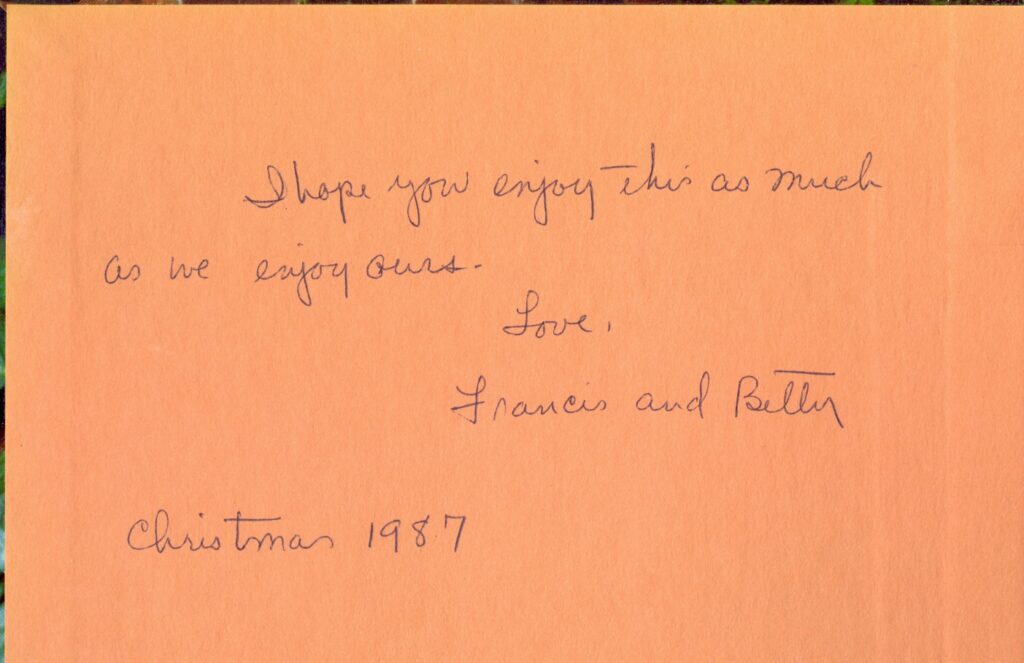 I hope you enjoy this as much
as we enjoy ours.
Love,
Francis and Betty
Christmas 1987